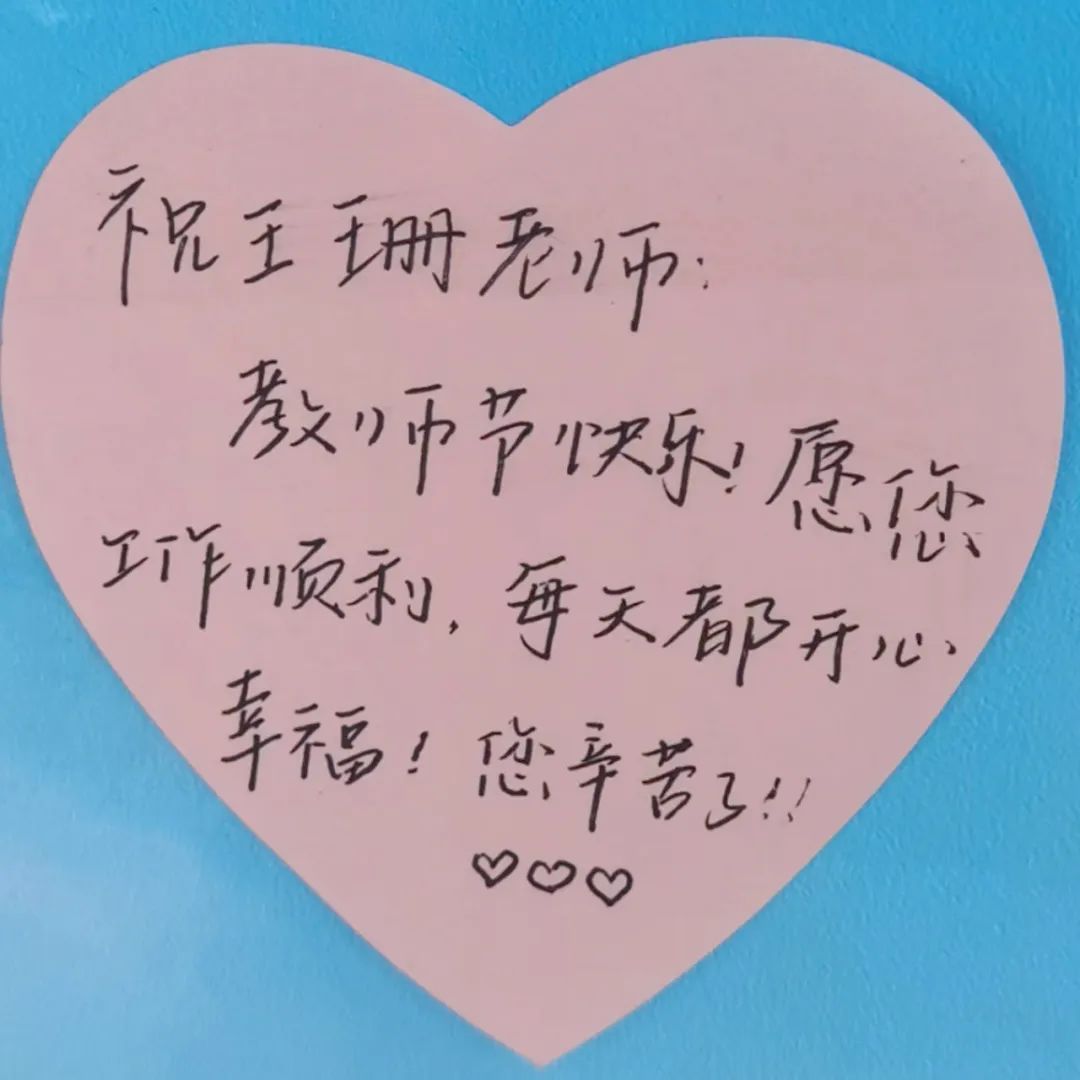 祝王珊老师：
教师节快乐！愿您
工作顺利，每天都开心
幸福！您辛苦了！！
♡♡♡